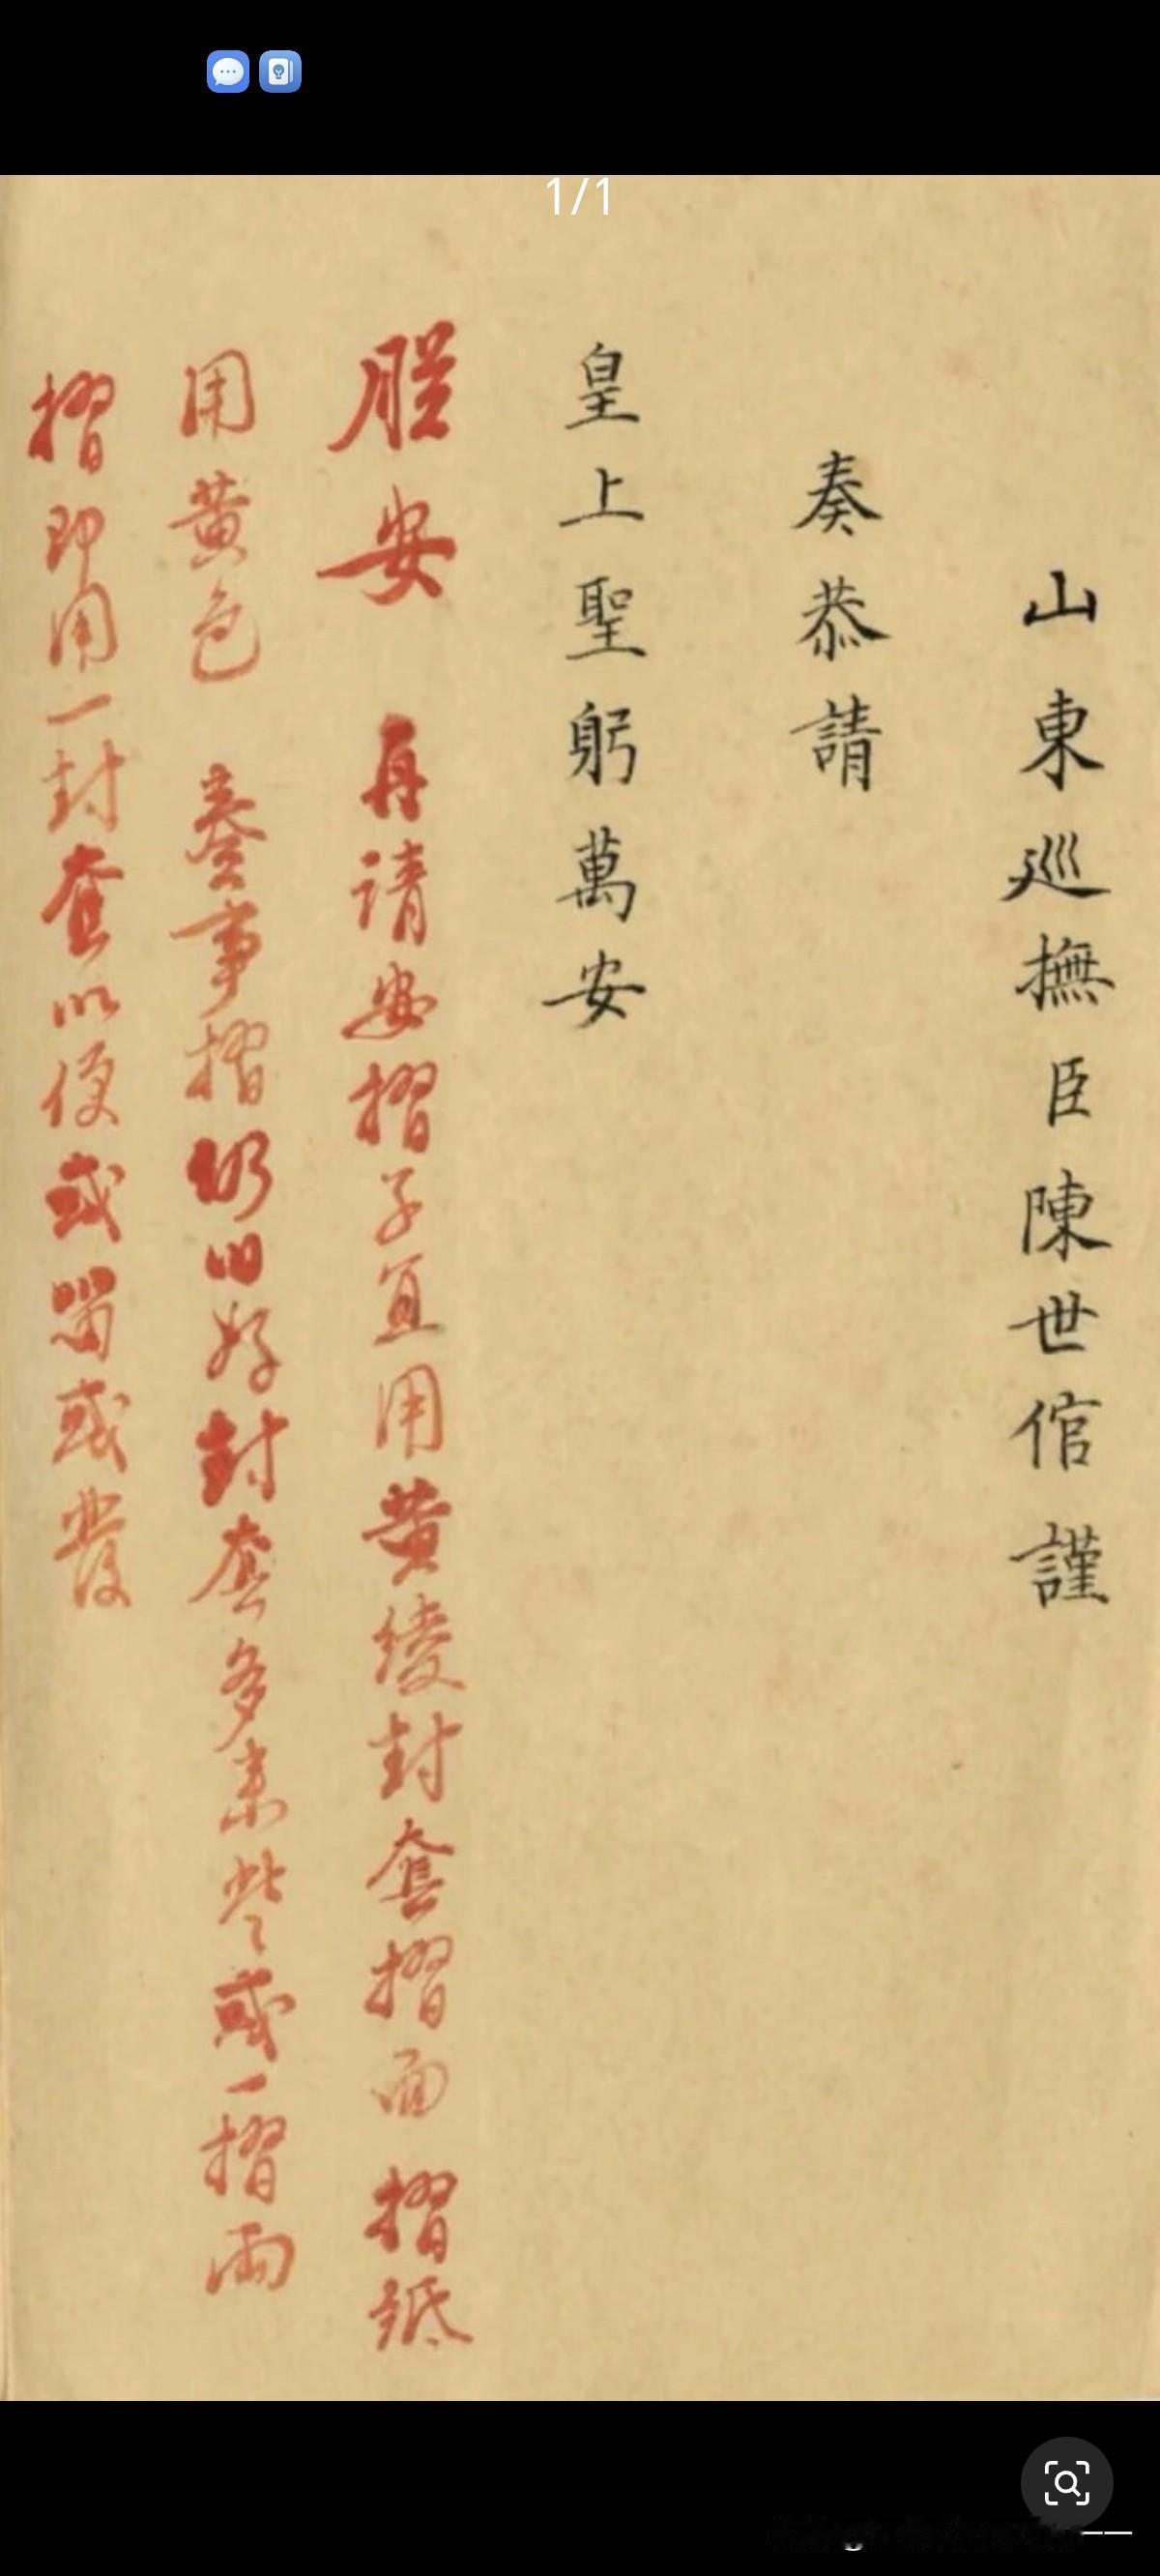 1/1
山東巡撫臣陳世倌謹
奏恭請
皇上聖躬萬安
朕安 再請安摺子宜用黄綾封套摺面摺紙
用黄色 奏事摺仍旧好封套多些或一摺兩
摺即用一封套以便或留或發